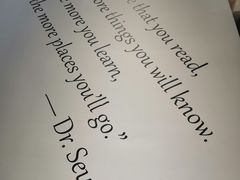 e that you read,
ore things you will know.
e more you learn,
he more places you'll go."
— Dr. Seu